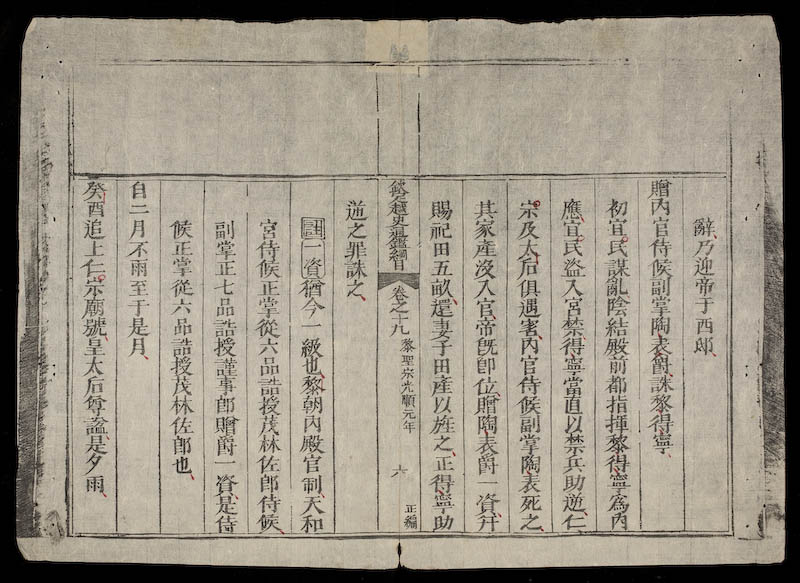 辭乃迎帝于西邸
贈內官侍候副掌陶表爵誅黎得寧
初宜民謀亂陰結殿前都指揮黎得寧爲內
應宜民盜入宮禁得寧當直以禁兵助逆仁
宗及太后俱遇害內官侍候副掌陶表死之
其家產沒入官帝旣卽位贈陶表爵一資幷
賜祀田五畝還妻子田產以旌之正得寧助
欽定越史通鑑綱目 卷之十九 黎聖宗光順元年 六 正編
逆之罪誅之
註 一資猶今一級也黎朝內殿官制天和
宮侍候正掌從六品誥授茂林佐郎侍候
副掌正七品誥授謹事郎贈爵一資是侍
候正掌從六品誥授茂林佐郎也
自二月不雨至于是月
癸酉追上仁宗廟號呈太后尊謚是夕雨